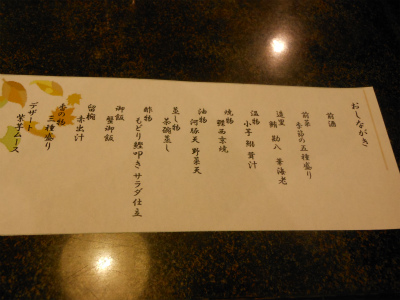 おしながき
前酒
前菜 季節の五種盛り
造里 鮪 勘八 車海老
温物 小芋 茸汁
焼物 鰹西京焼
油物 河豚天 野菜天
蒸し物 茶碗蒸し
酢物 もどり鰹叩き サラダ仕立
御飯 蟹御飯
留椀 赤出汁
香の物 三種盛り
デザート 紫芋ムース